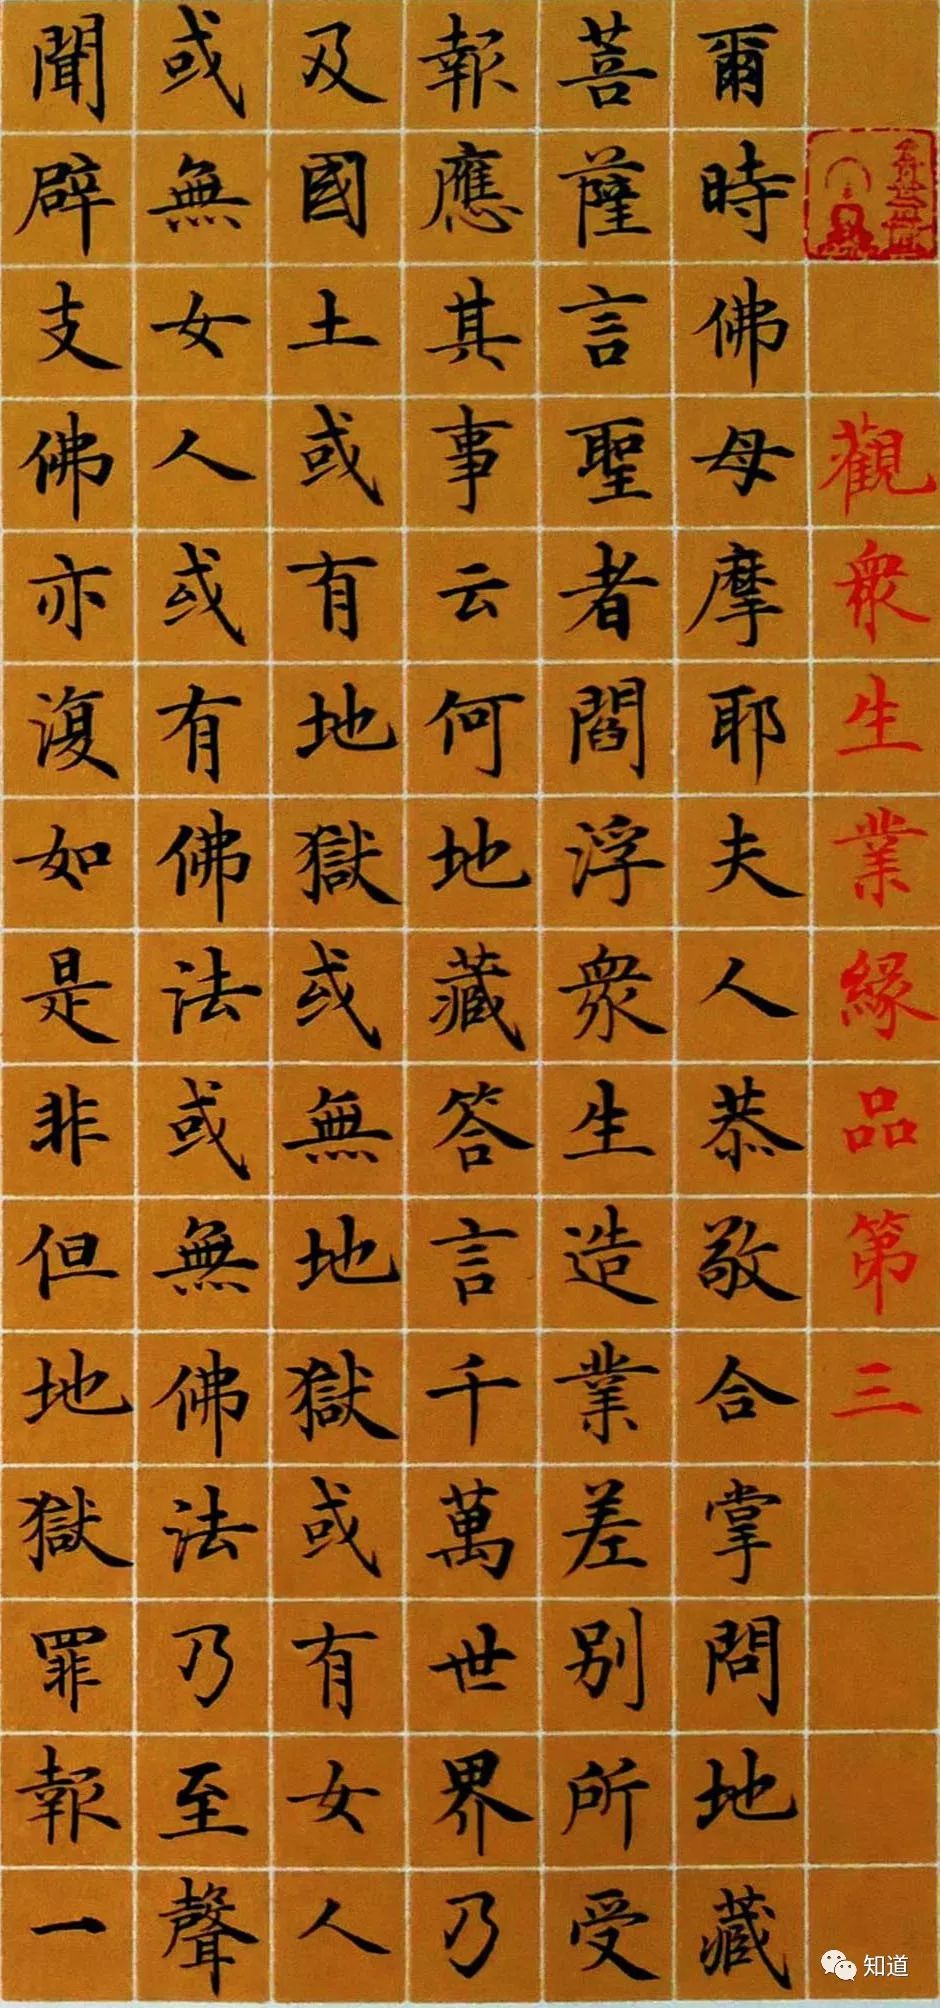 觀衆生業緣品第三
爾時佛母摩耶夫人恭敬合掌問地藏
菩薩言聖者閻浮衆生造業差別所受
報應其事云何地藏答言千萬世界乃
及國土或有地獄或無地獄或有女人
或無女人或有佛法或無佛法乃至聲
聞辟支佛亦復如是非但地獄罪報一
知道